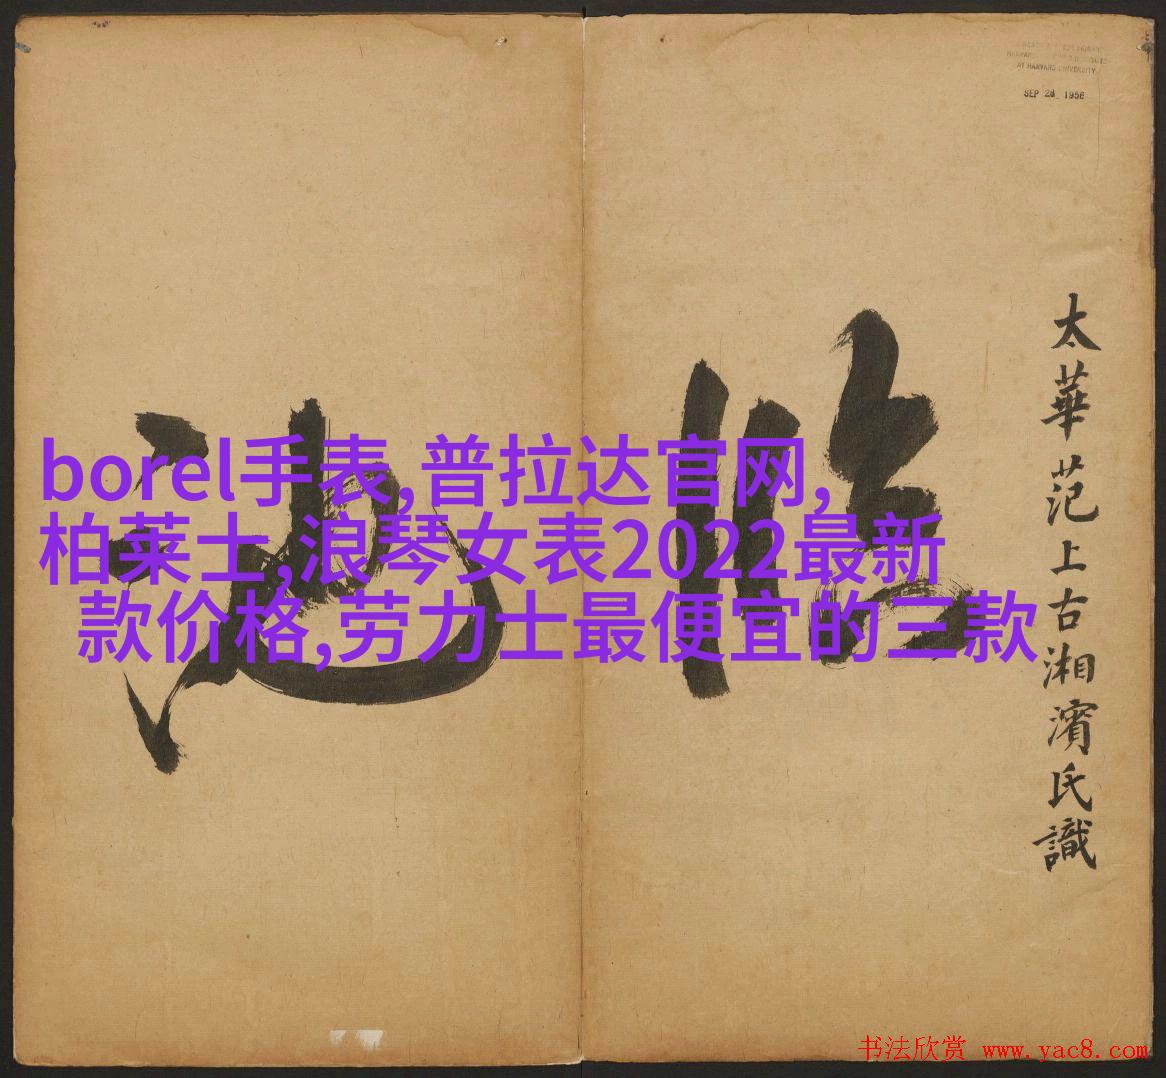 HARVARD
AT HARVARD UNIVERSITY
SEP 28 1956
太華范上古湘濱氏識
borel手表,普拉达官网,
柏莱士,浪琴女表2022最新
款价格,劳力士最便宜的三款
书法欣赏 www.yac8.com